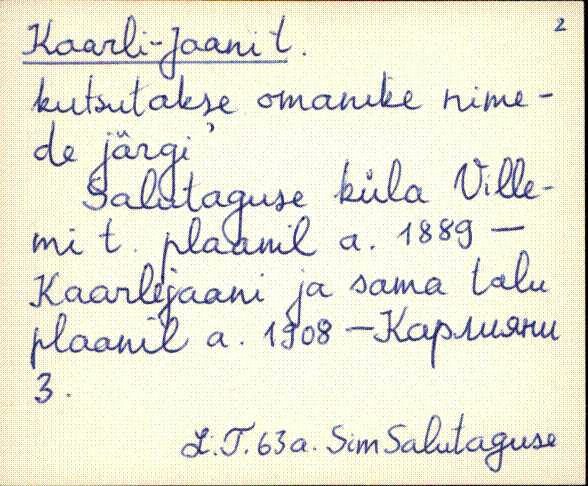 2
Kaarli-Jaani t.
kutsutakse omanike nime-
de järgi'
Salutaguse küla Ville-
mi t. plaanil a. 1889 —
Kaarlejaani ja sama talu
plaanil a. 1908 — Карлияни
3.
L.T. 63 a. Sim Salutaguse